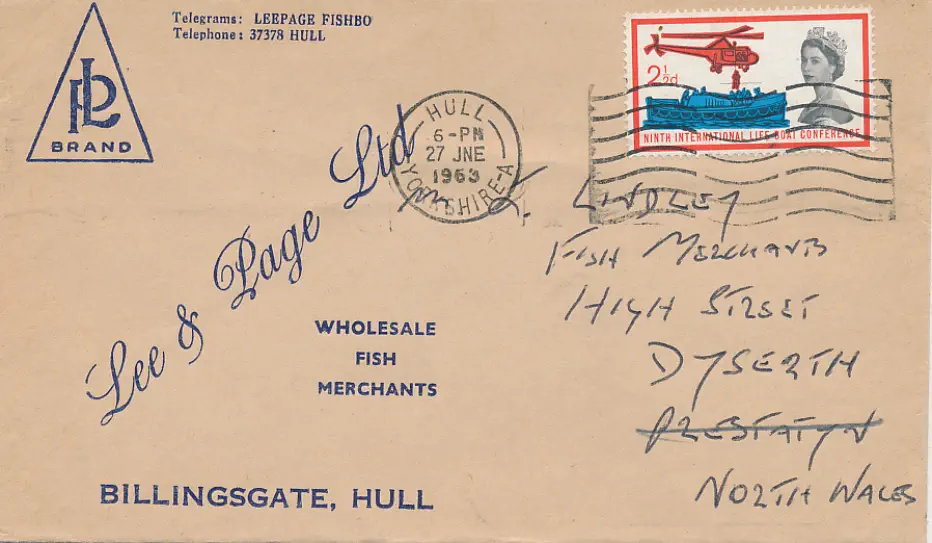 Telegrams: LEEPAGE FISHBO
Telephone: 37378 HULL
LP
BRAND
Lee & Page Ltd
WHOLESALE
FISH
MERCHANTS
BILLINGSGATE, HULL
HULL
6-PM
27 JNE
1963
YORKSHIRE-A
2½d
NINTH INTERNATIONAL LIFE-BOAT CONFERENCE
LINDLEY
FISH MERCHANTS
HIGH STREET
DYSERTH
PRESTATYN
NORTH WALES